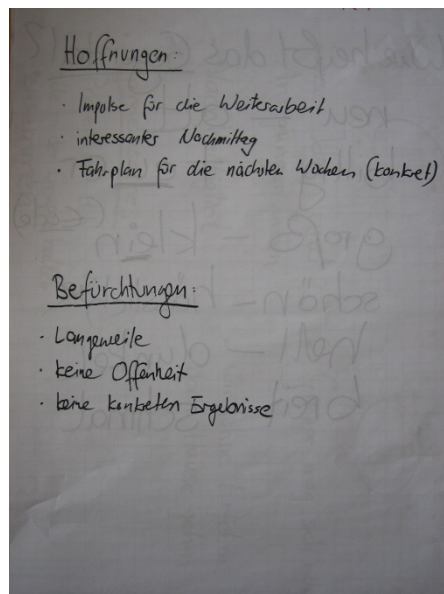 Hoffnungen:
· Impulse für die Weiterarbeit
· interessanter Nachmittag
· Fahrplan für die nächsten Wochen (konkret)
Befürchtungen:
· Langeweile
· keine Offenheit
· keine konkreten Ergebnisse